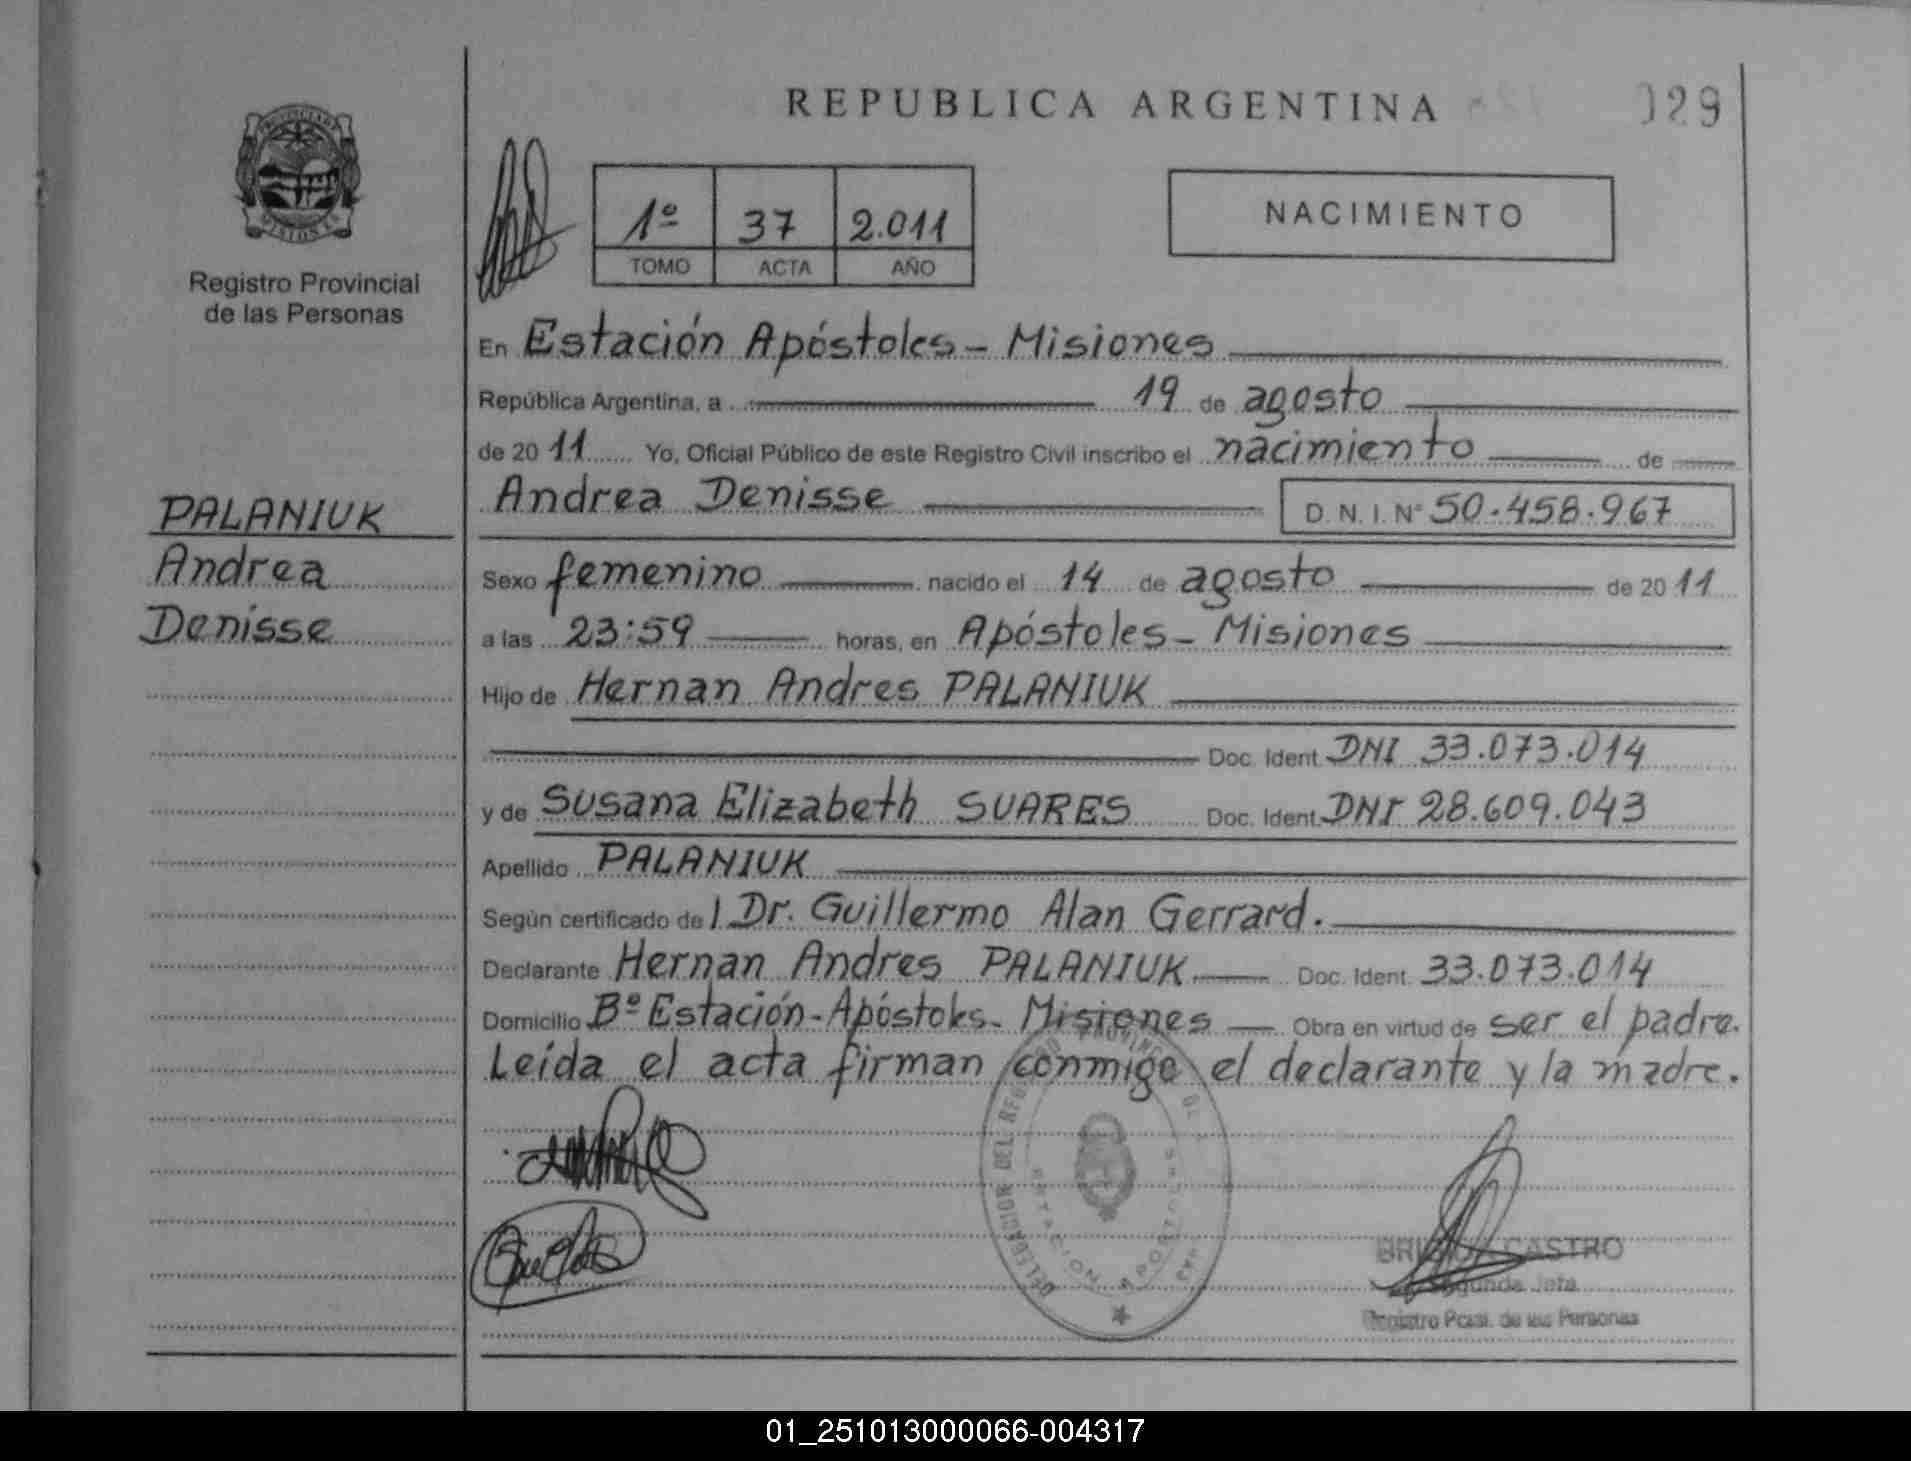 REPUBLICA ARGENTINA
029
PROVINCIA DE MISIONES
Registro Provincial
de las Personas
1º 37 2.011
TOMO ACTA AÑO
NACIMIENTO
En Estación Apóstoles - Misiones
República Argentina, a 19 de agosto
de 2011 Yo, Oficial Público de este Registro Civil inscribo el nacimiento de
Andrea Denisse D. N. I. Nº 50.458.967
PALANIUK
Andrea
Denisse
Sexo femenino nacido el 14 de agosto de 2011
a las 23:59 horas, en Apóstoles - Misiones
Hijo de Hernan Andres PALANIUK
Doc. Ident. DNI 33.073.014
y de Susana Elizabeth SUARES Doc. Ident. DNI 28.609.043
Apellido PALANIUK
Según certificado de l Dr. Guillermo Alan Gerrard.
Declarante Hernan Andres PALANIUK Doc. Ident. 33.073.014
Domicilio Bº Estación - Apóstoles - Misiones Obra en virtud de ser el padre.
Leída el acta firman conmigo el declarante y la madre.
DELEGACION DEL REGISTRO PROVINCIAL DE
ESTACION APOSTOLES
CASTRO
Segunda Jefa
Registro Pcial. de las Personas
01_251013000066-004317